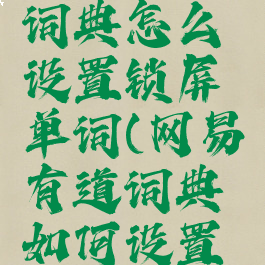 词典怎么
设置锁屏
单词(网易
有道词典
如何设置